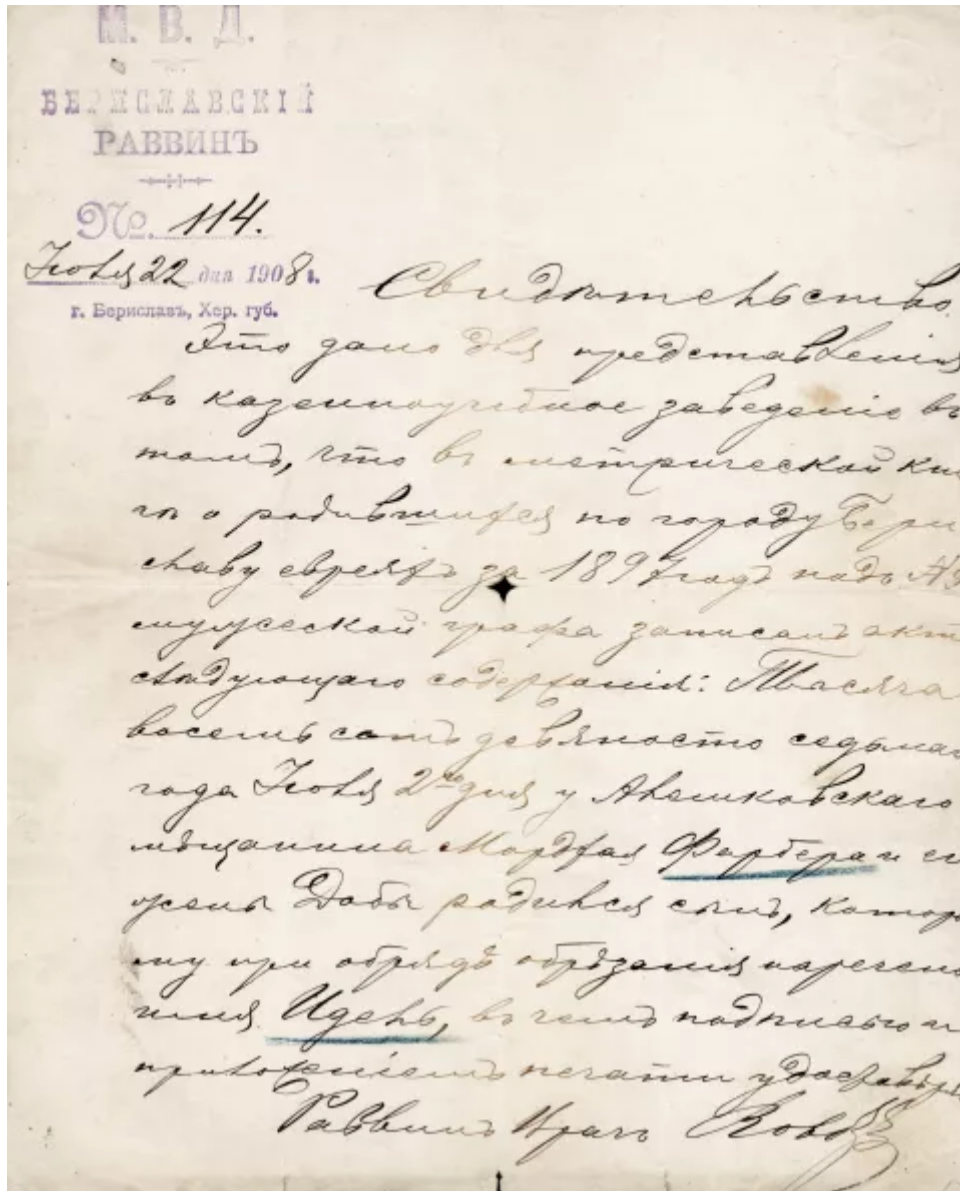 М. В. Д.
БЕРИСЛАВСКІЙ
РАВВИНЪ
№. 114.
Іюля 22 дня 1908 г.
г. Бериславъ, Хер. губ.
Свидѣтельство.
Это дано для представленія
въ казенноучебное заведеніе въ
томъ, что въ метрической кни
гѣ о родившихся по городу Бери
славу евреяхъ за 1897 годъ подъ №
мужеской графы записанъ актъ
слѣдующаго содержанія: Тысяча
восемьсотъ девяносто седьмаго
года Іюля 2го дня у Алешковскаго
мѣщанина Мордхая Фарбера и ег
жены Добы родился сынъ, котор
му при обрядѣ обрѣзанія наречено
имя Идель, въ чемъ подписью и
приложеніемъ печати удостовѣря
Раввинъ Врачъ